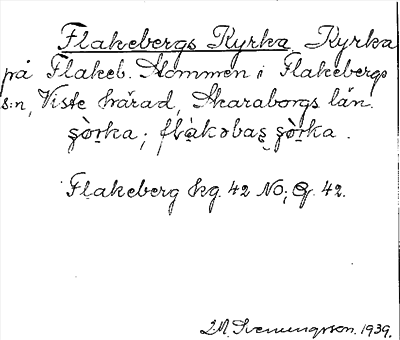 Flakebergs Kyrka. Kyrka
på Flakeb. Stommen i Flakebergs
s:n, Viste härad, Skaraborgs län.
Flakeberg kg. 42 NO; G. 42.
M. Svenungsson. 1939.